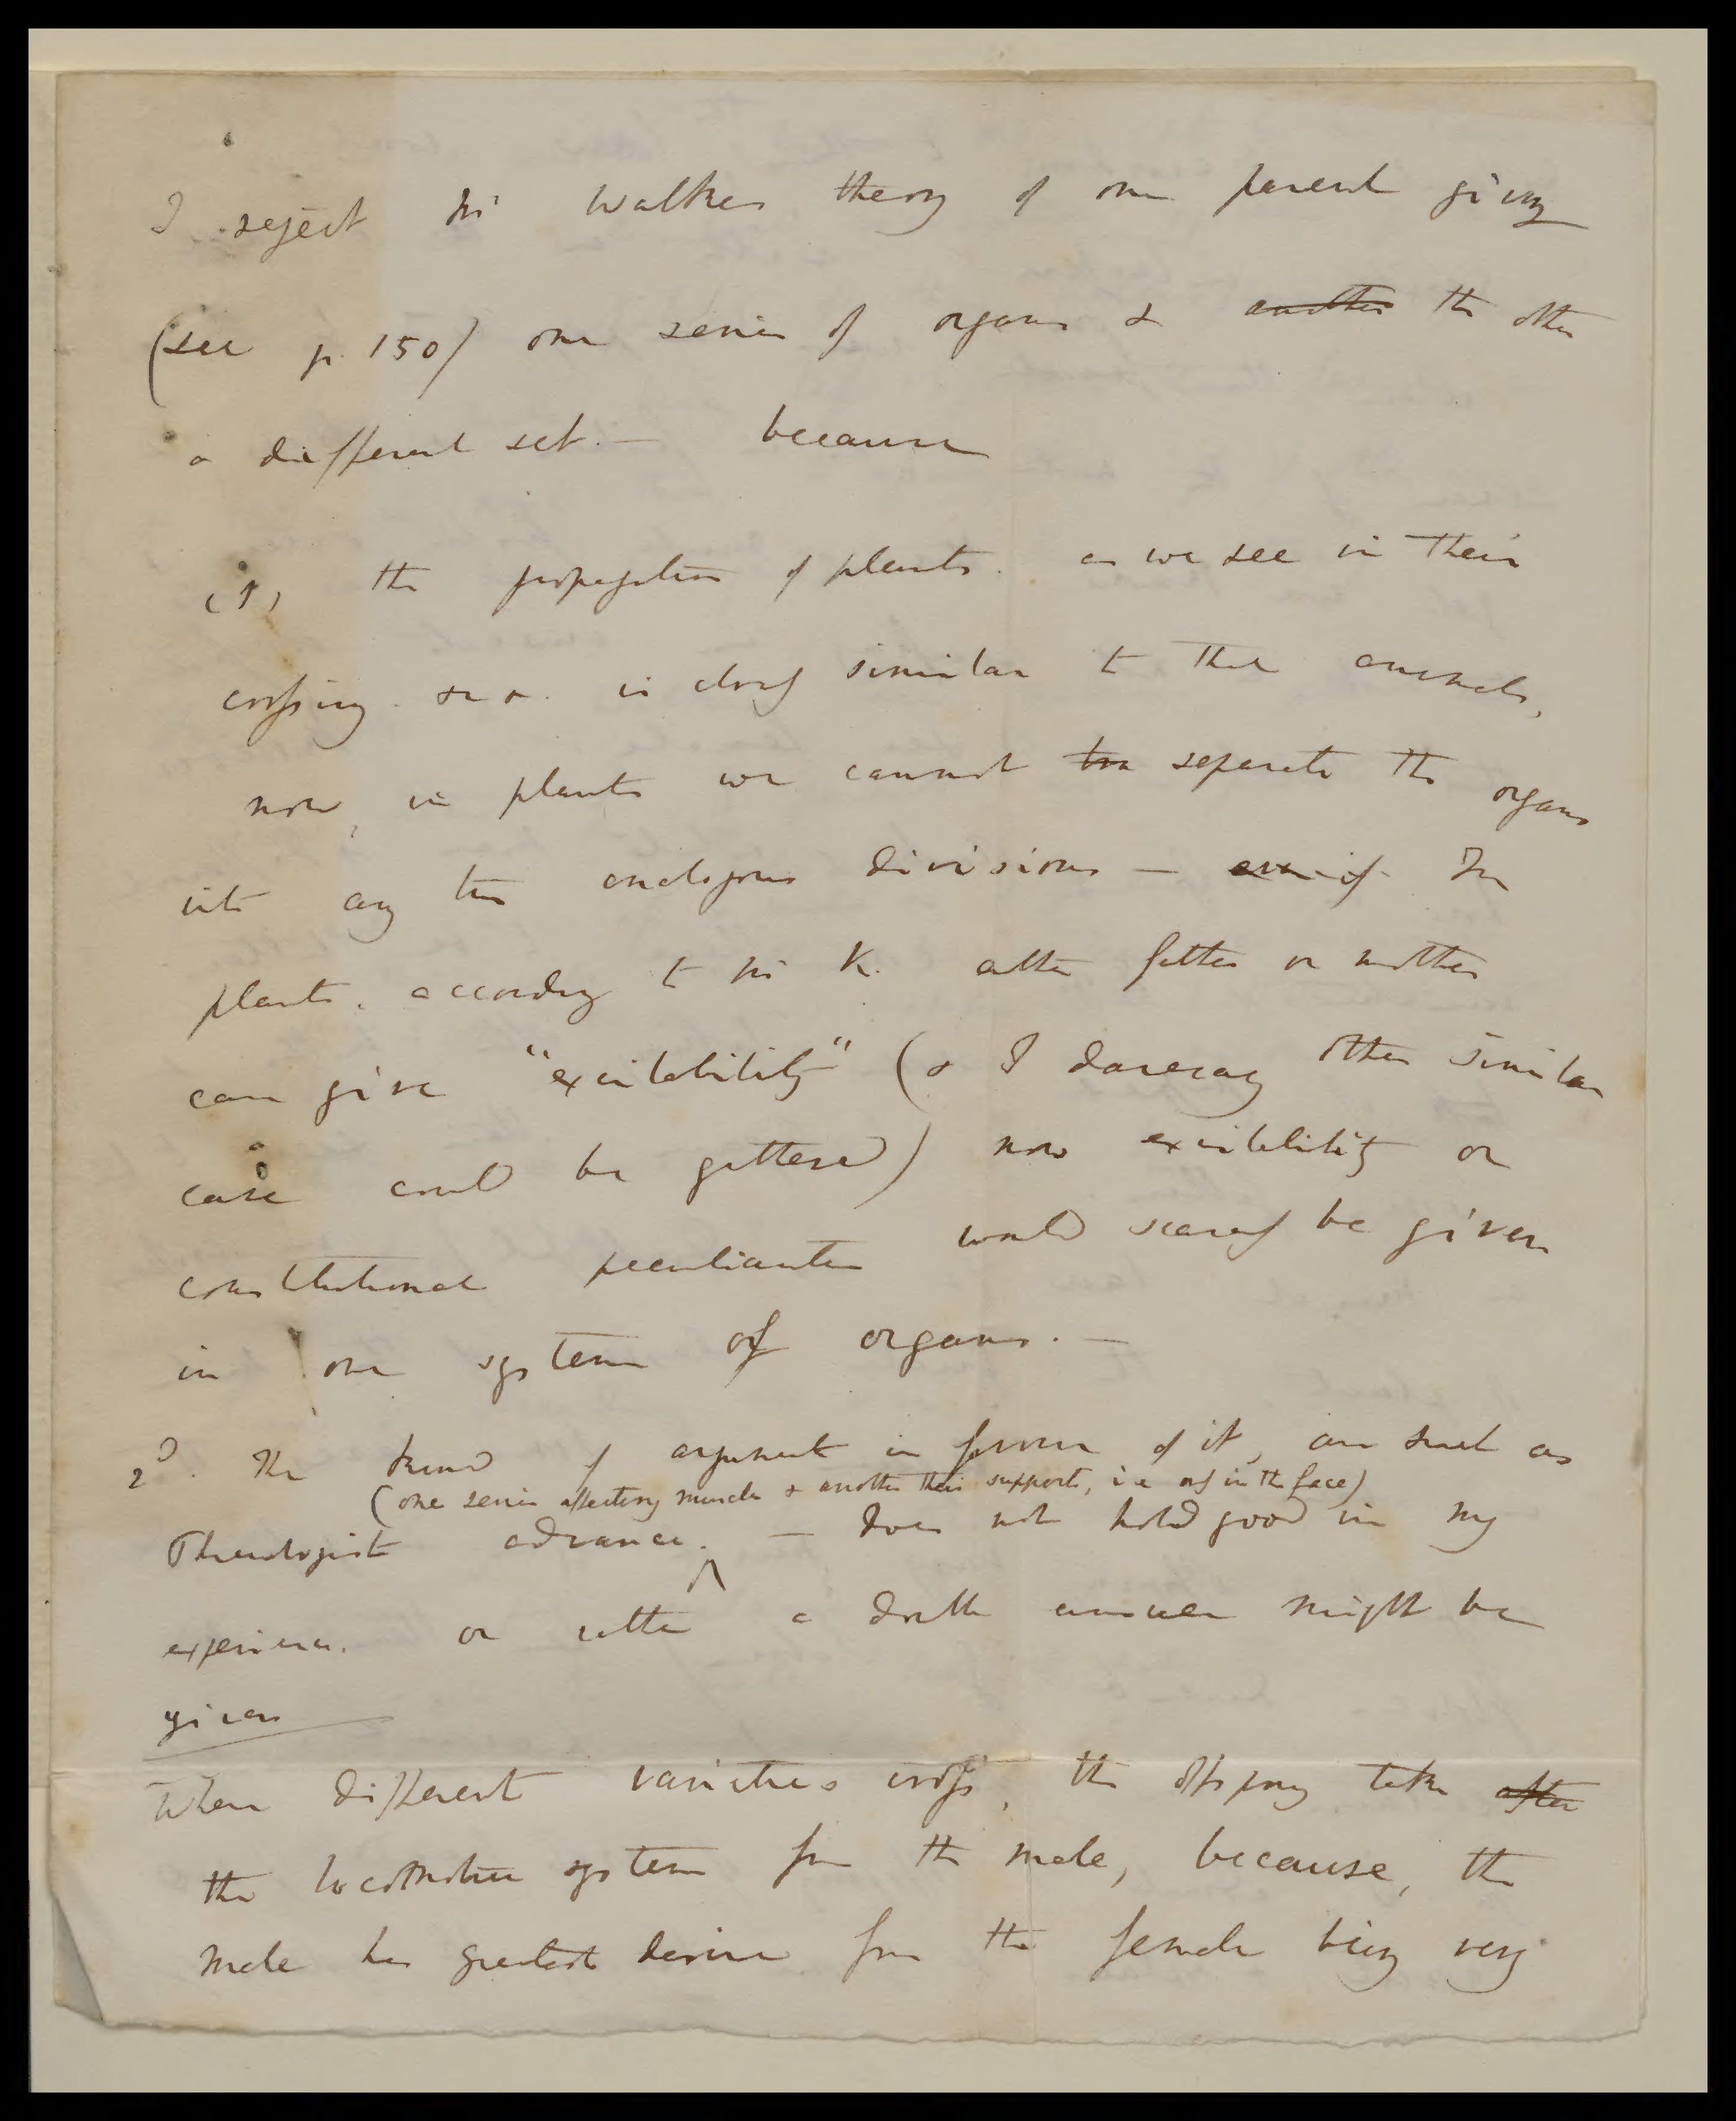 I reject Mr Walker theory of one parent giving
(see p. 150) one series of organs & another the other
a different set. — because
(1) the propagation of plants. as we see in their
crossing. &c &. is closely similar to that animals,
now, in plants we cannot separate the organs
into any two analogous divisions — even if In
plants. according to Mr K. either father or mother
can give "excitability" (& I daresay other similar
case could be gathered) now excitability or
constitutional peculiarities would scarcely be given
in one system of organs. —
2d. The kind of argument in favour of it, are such as
(one series affecting muscle & another their supports, i.e. only in the face)
Phrenologists advance. — does not hold good in my
experience. or rather a double answer might be
given
When different varieties cross, the offspring take after
the locomotive system from the male, because, the
male has greatest desire from the female being very